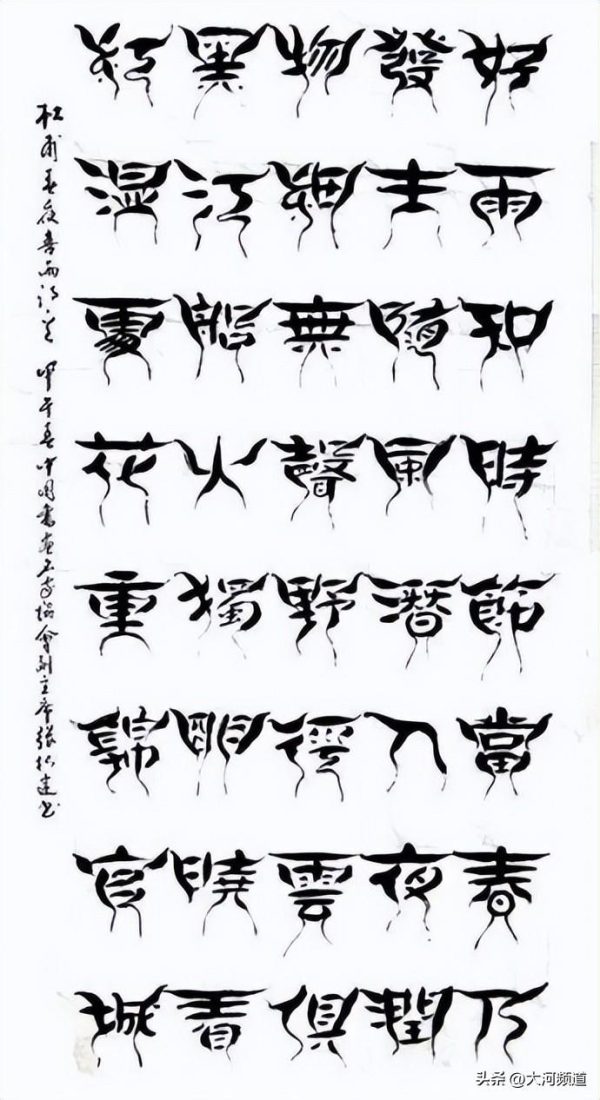 好雨知時節當春乃
發生隨風潛入夜潤
物細無聲野徑雲俱
黑江船火獨明曉看
紅湿處花重錦官城
杜甫春夜喜雨 甲午春中國書畫名家協會副主席張 書
头条 @大河频道